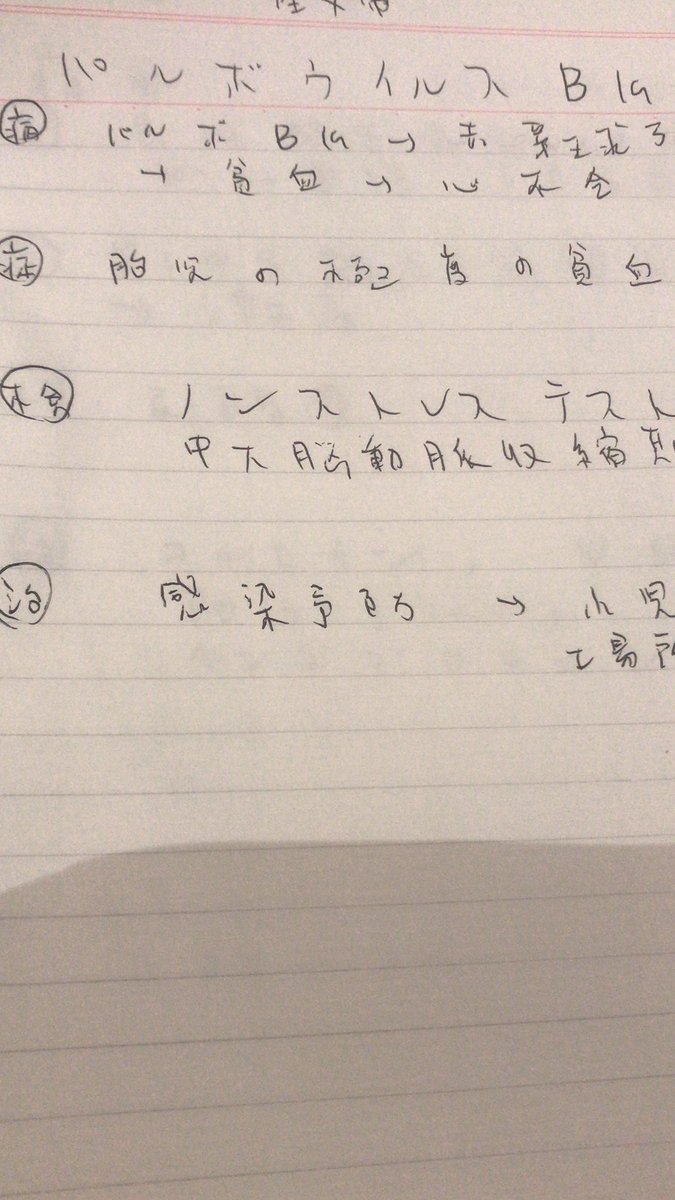 パルボウイルス B19
病 パルボ B19 → 赤芽球
→ 貧血 → 心不全
症 胎児の 程度の貧血
検 ノンストレステスト
中大脳動脈収縮期
治 感染予防 → 小児
場所